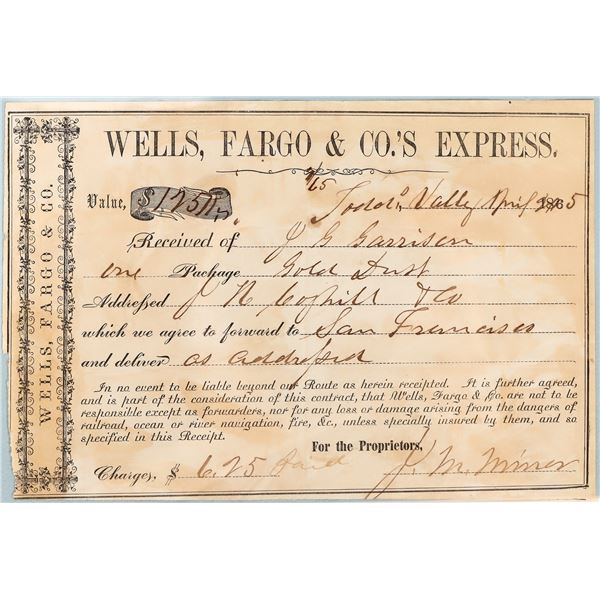 WELLS, FARGO & CO.
WELLS, FARGO & CO.'S EXPRESS.
Value, $
Todd's Valley 1865
Received of J G Garrison
one Package Gold Dust
Addressed J N Coghill & Co
which we agree to forward to San Francisco
and deliver as addressed
In no event to be liable beyond our Route as herein receipted. It is further agreed,
and is part of the consideration of this contract, that Wells, Fargo & Co. are not to be
responsible except as forwarders, nor for any loss or damage arising from the dangers of
railroad, ocean or river navigation, fire, &c., unless specially insured by them, and so
specified in this Receipt.
For the Proprietors,
Charges, $ 6.25 Paid J. M. Miner